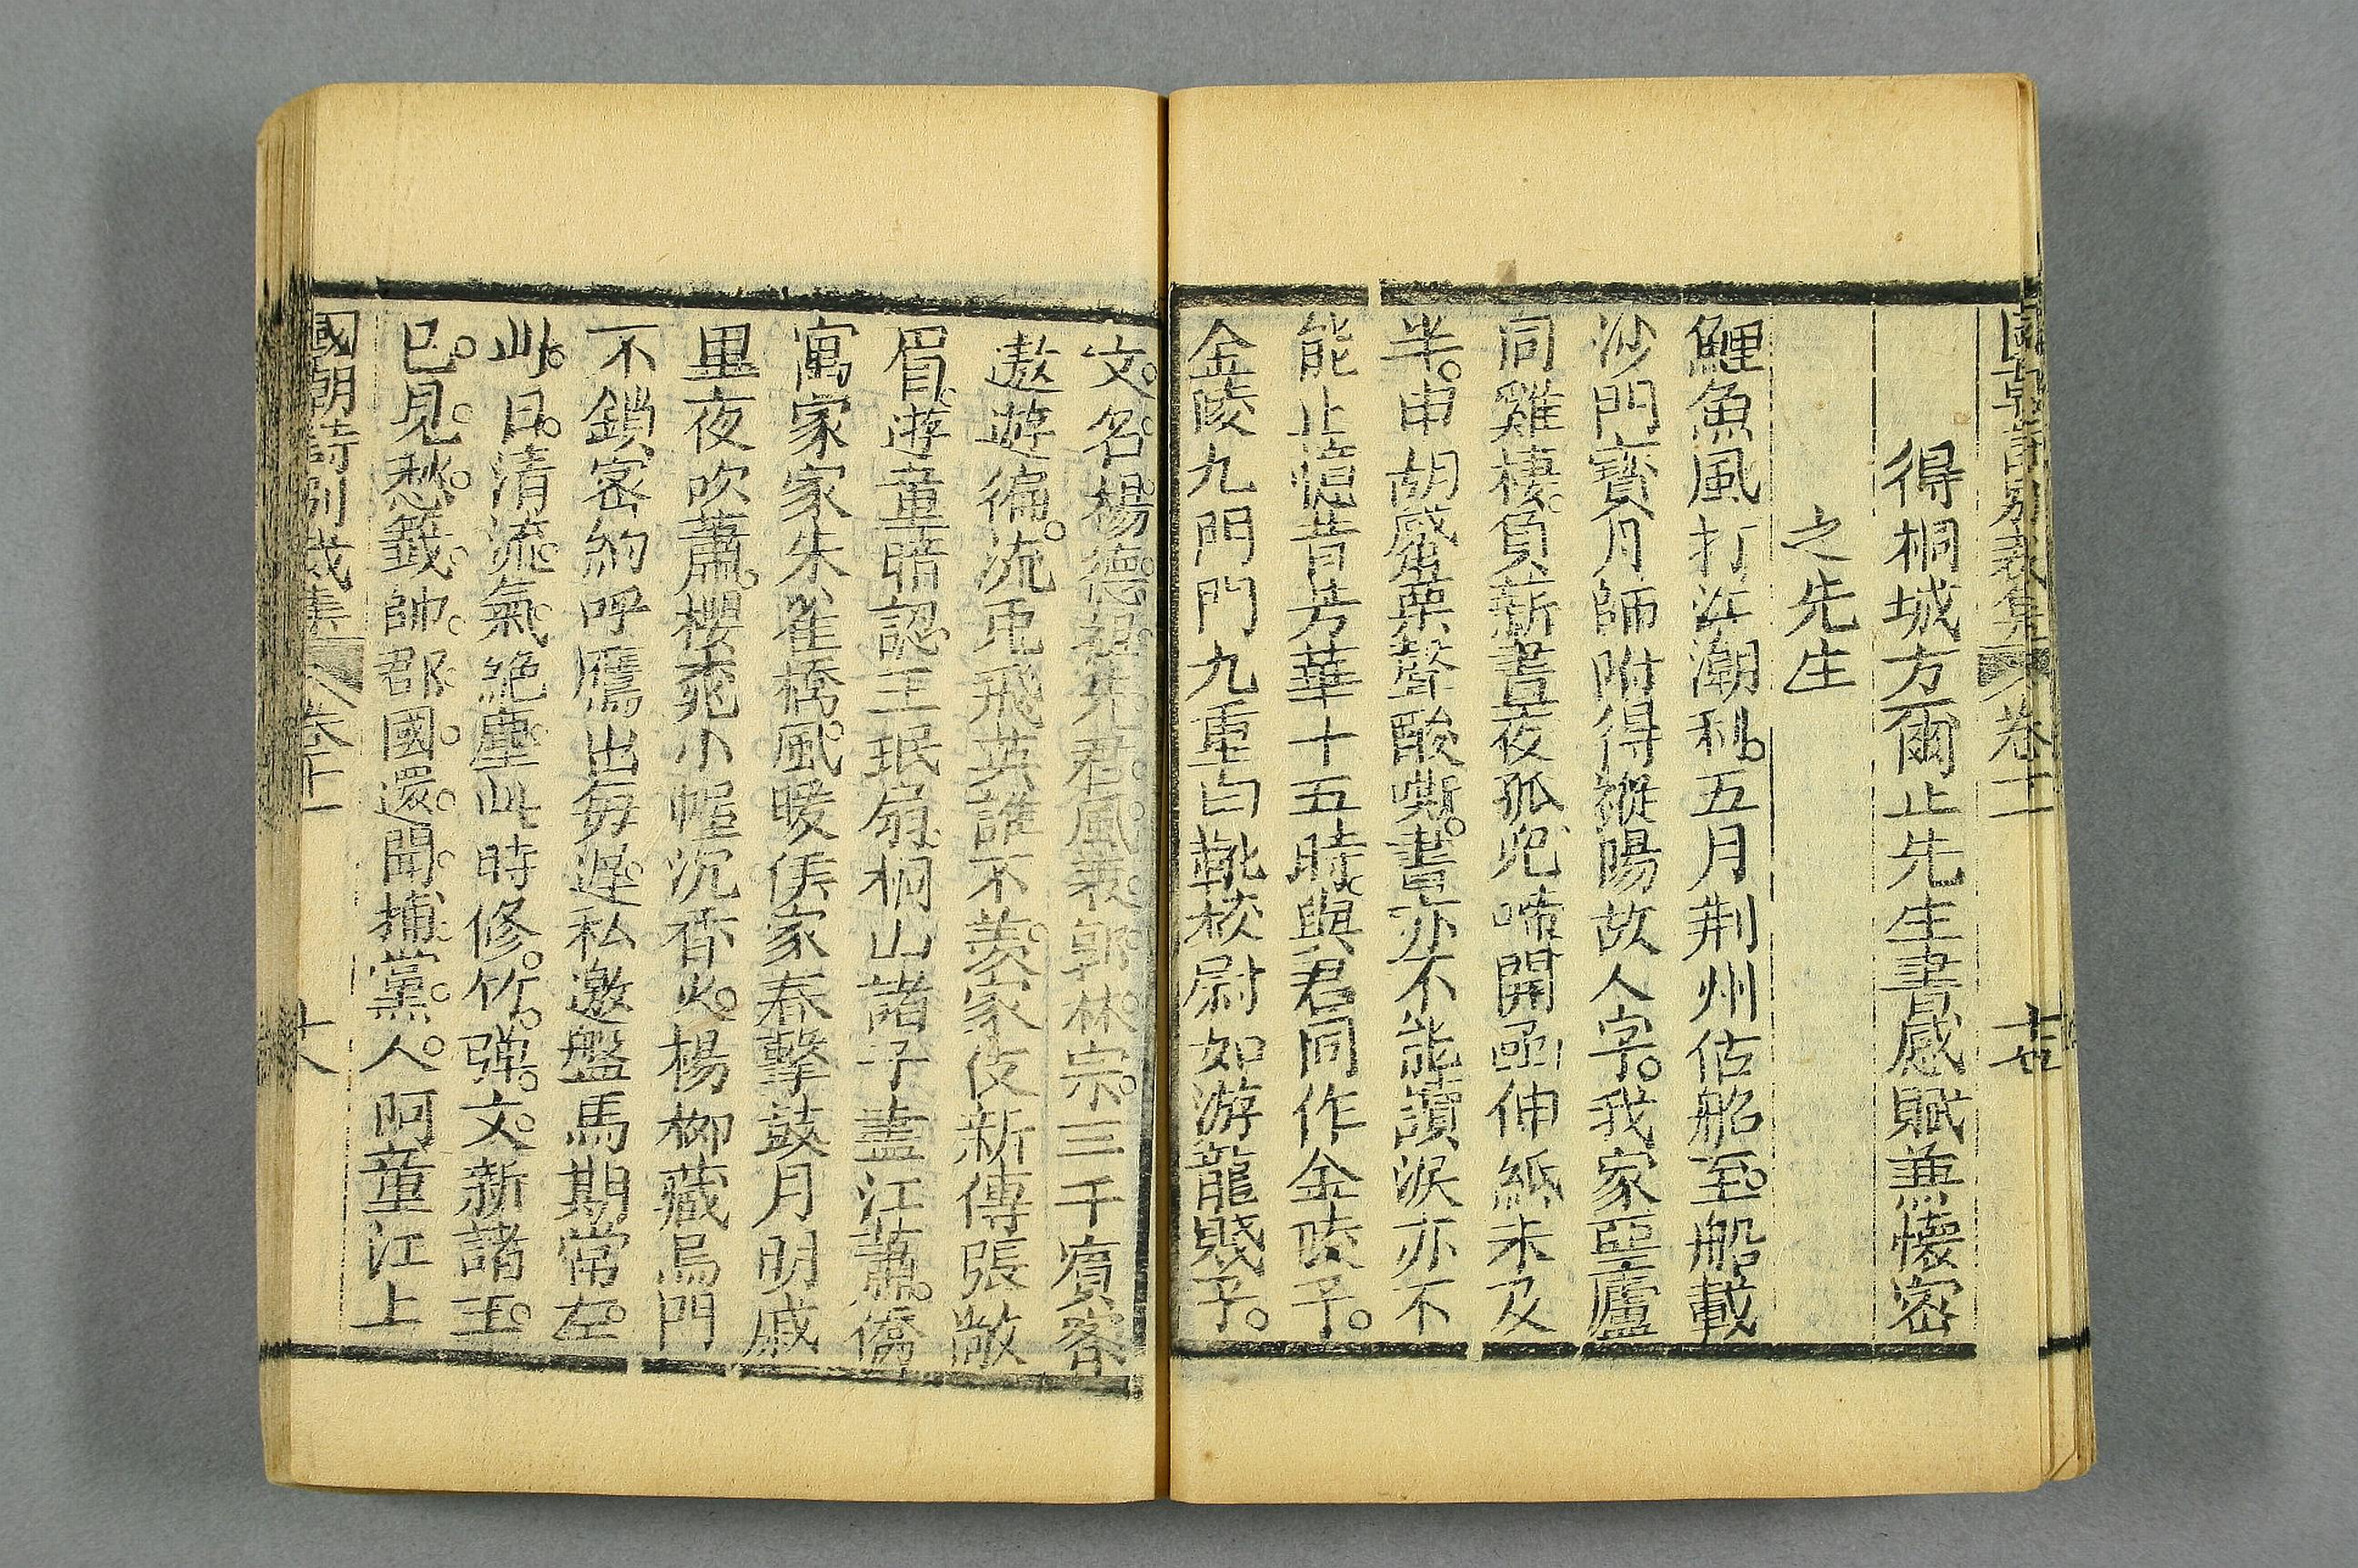 國朝詩別裁集 卷十二
得桐城方爾止先生書感賦兼懷密
之先生
鯉魚風打江潮利。五月荆州估船至。船載
沙門寶月師附得樅陽故人字。我家堊廬
同雞棲。負薪晝夜孤兒啼開函伸紙未及
半。申胡觱栗聲酸嘶。書亦不能讀淚亦不
能止憶昔芳華十五時。與君同作金陵子。
金陵九門門九重白靴校尉如游龍賤子。
文。名。楊。德。祖。先。君。風。義。郭。林。宗。三千賓客
遨遊徧。沈兎飛英誰不羨。家伎新傳張敞
眉。遊童暗認王珉扇。桐山諸子盡江蕭。僑
寓家家朱雀橋。風暖侯家春擊鼓月明戚
里夜吹蕭。櫻桃小幄沉香火。楊柳藏烏門
不鎖密約呼鷹出每遲。私邀盤馬期常左。
此。日。清流。氣。絶。塵。此時修。竹。彈。文。新諸王。
巳。見。愁。籤。帥。郡。國。還。聞。捕。黨。人。阿童江上
國朝詩別裁集 卷十二